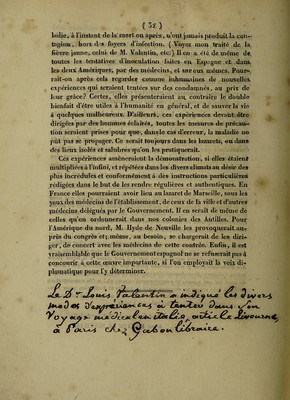 ( 52 )
ladie, à l'instant de la mort ou après, n'ont jamais produit la con-
tagion, hors des foyers d'infection. (Voyez mon traité de la
fièvre jaune, celui de M. Valentin, etc.) Il en a été de même de
toutes les tentatives d'inoculation faites en Espagne et dans
les deux Amériques, par des médecins, et sur eux mêmes. Pour-
rait-on après cela regarder comme inhumaines de nouvelles
expériences qui seraient tentées sur des condamnés, au prix de
leur grâce? Certes, elles présenteraient au contraire le double
bienfait d'être utiles à l'humanité en général, et de sauver la vie
à quelques malheureux. D'ailleurs, ces expériences devant être
dirigées par des hommes éclairés, toutes les mesures de précau-
tion seraient prises pour que, dans le cas d'erreur, la maladie ne
pût pas se propager. Ce serait toujours dans les lazarets, ou dans
des lieux isolés et salubres qu'on les pratiquerait.
Ces expériences amèneraient la démonstration, si elles étaient
multipliées à l'infini, et répétées dans les divers climats au désir des
plus incrédules et conformément à des instructions particulières
rédigées dans le but de les rendre régulières et authentiques. En
France elles pourraient avoir lieu au lazaret de Marseille, sous les
yeux des médecins de l'établissement, de ceux de la ville et d'autres
médecins délégués par le Gouvernement. Il en serait de même de
celles qu'on ordonnerait dans nos colonies des Antilles. Pour
l'Amérique du nord, M. Hyde de Neuville les provoquerait au-
près du congrès et, même, au besoin, se chargerait de les diri-
ger, de concert avec les médecins de cette contrée. Enfin, il est
vraisemblable que le Gouvernement espagnol ne se refuserait pas à
concourir à cette œuvre importante, si l'on employait la voix di-
plomatique pour l'y déterminer.
Le Dr Louis Valentin a indiqué les divers
modes d'expériences à tenter dans son
Voyage médical en italie, article Livourne,
à Paris chez Gabon libraire.